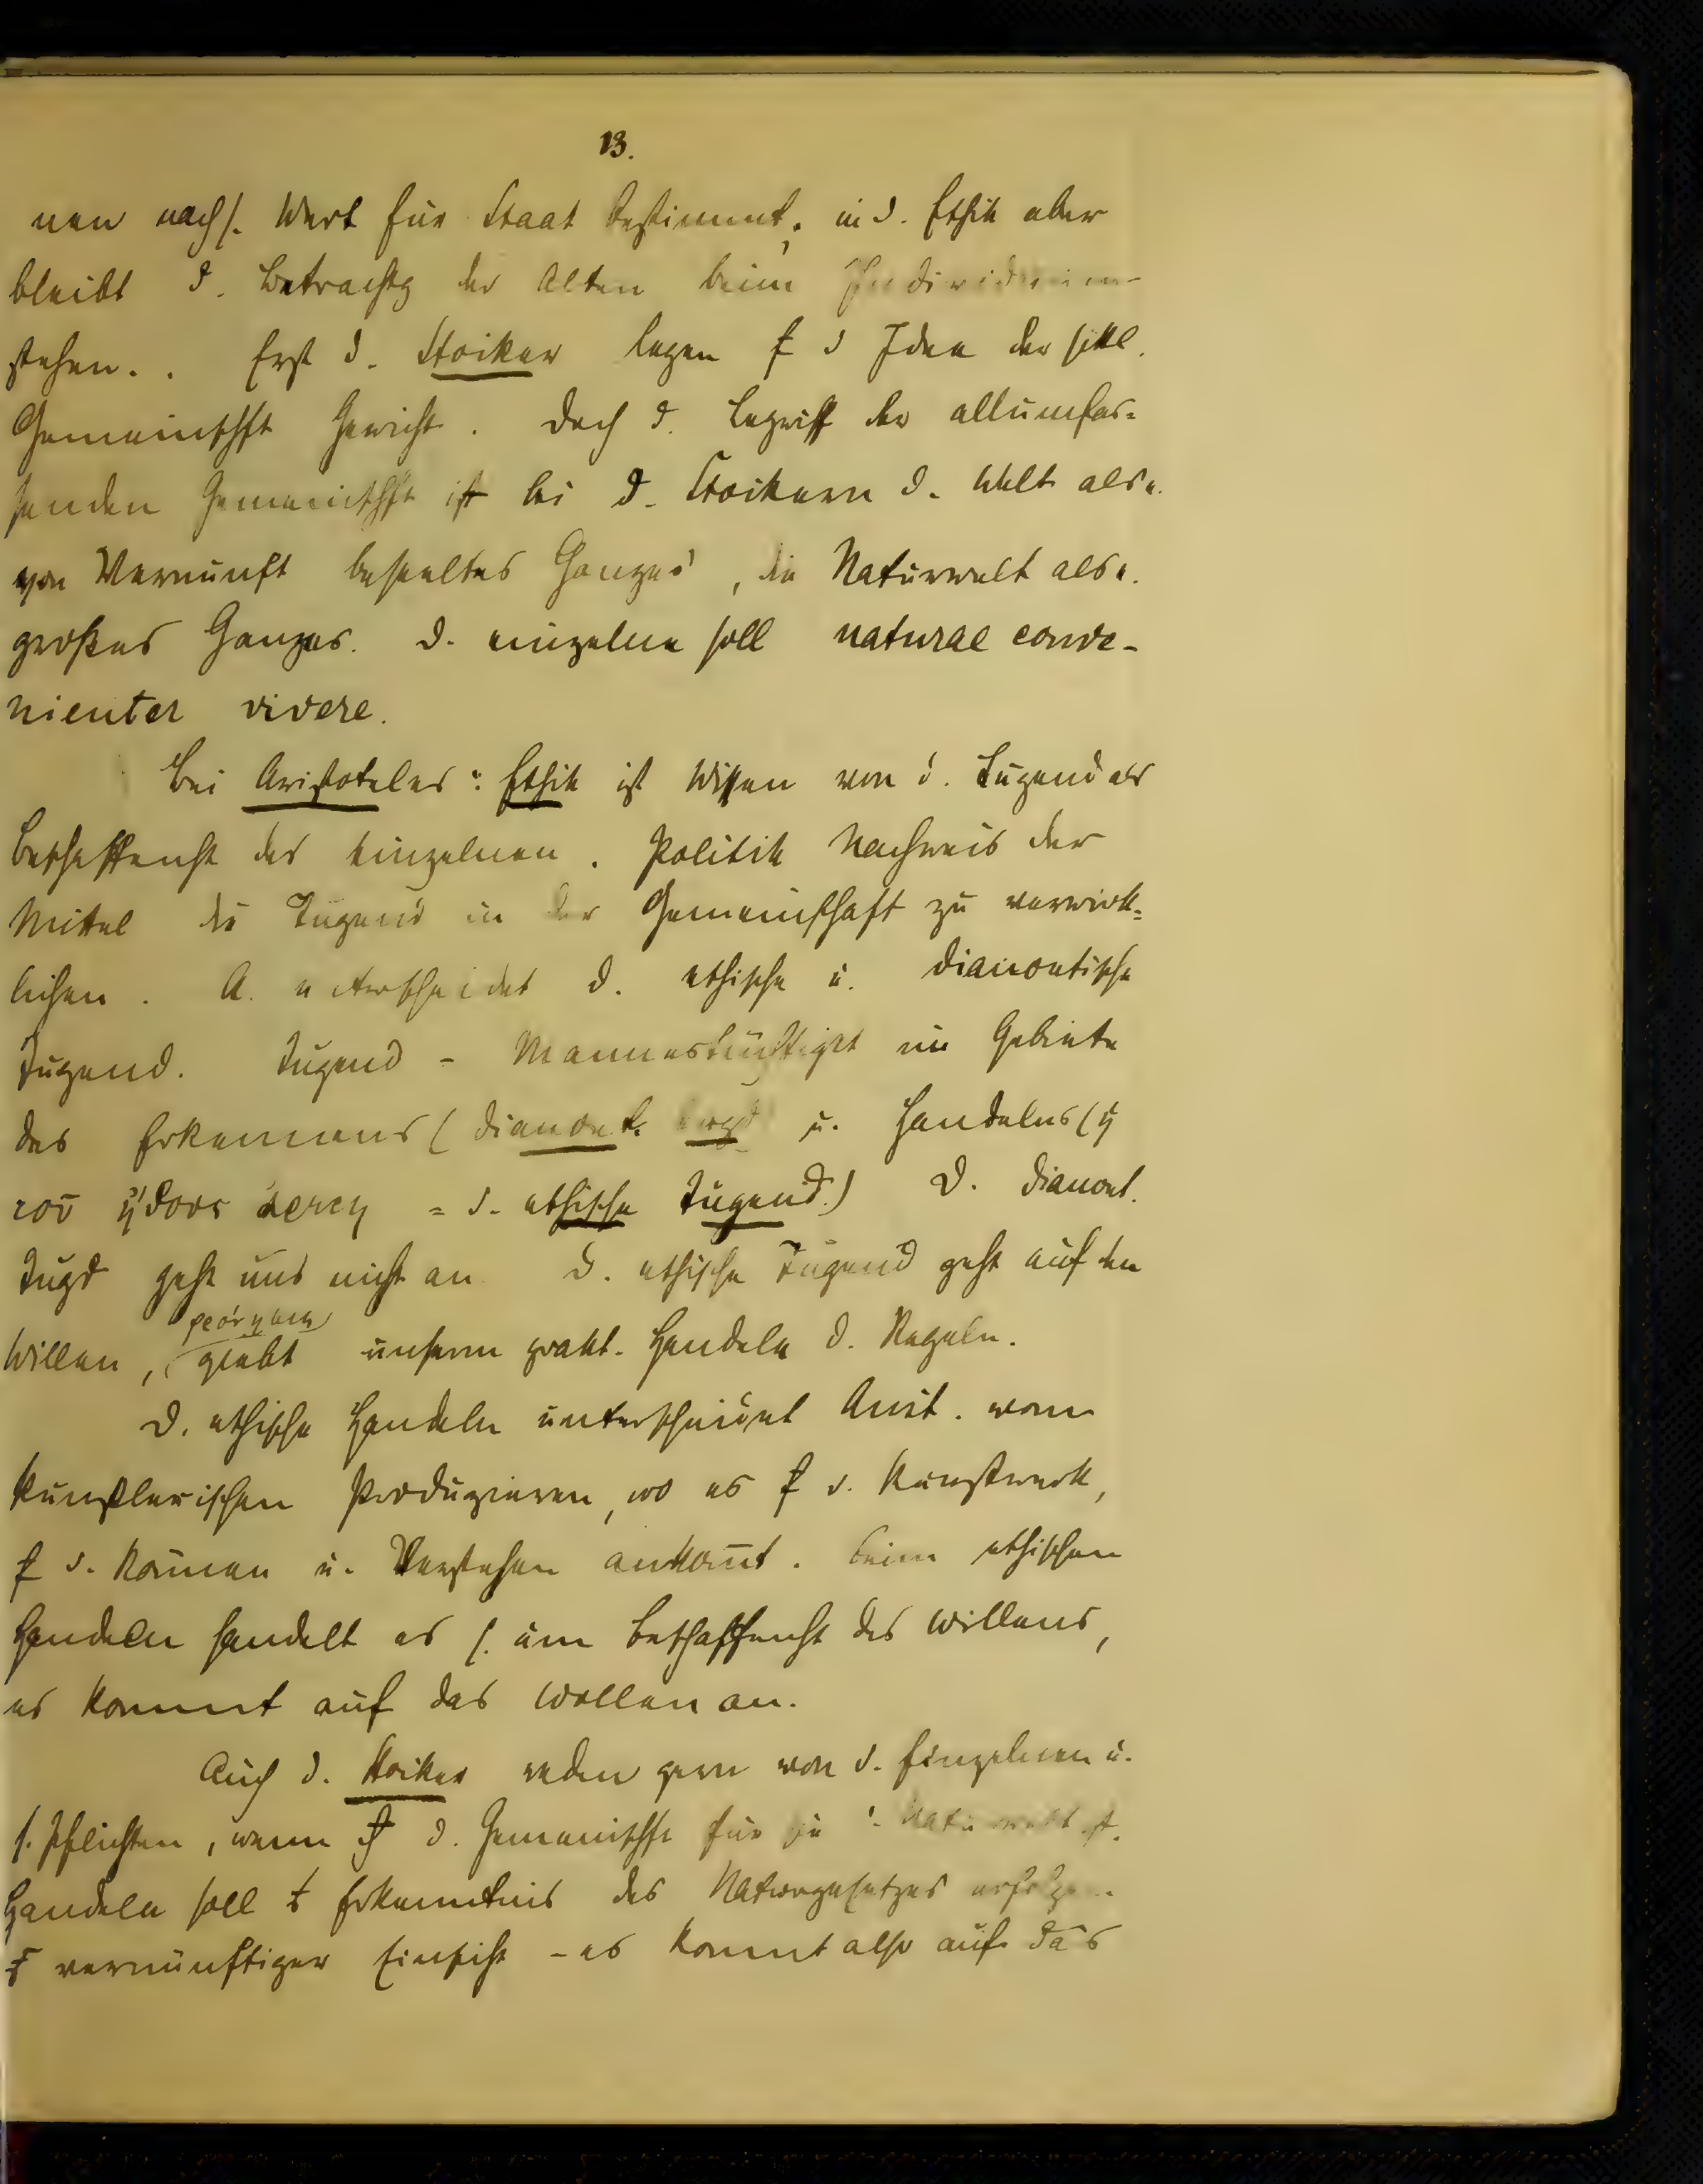 13.
nen nach s. Wert für Staat bestimmt; in d. Ethik aber
bleibt d. Betrachtg der Alten beim Individuum
stehen. Erst d. Stoiker legen f d Idee der sittl.
Gemeinschft Gewicht. Doch d. Begriff der allumfas-
senden Gemeinschft ist bei d. Stoikern d. Welt als e.
von Vernunft beseeltes Ganzes, die Naturwelt als e.
großes Ganzes. D. einzelne soll naturae conve-
nienter vivere.
Bei Aristoteles: Ethik ist Wissen von d. Tugend als
Beschaffenht des Einzelnen. Politik Nachweis der
Mittel die Tugend in der Gemeinschaft zu verwirk-
lichen. A. unterscheidet d. ethische u. dianoetische
Tugend. Tugend = Mannestüchtigkt im Gebiete
des Erkennens (dianoet. Tugd u. Handelns (ἡ
τοῦ ἤθους ἀρετή = d. ethische Tugend.) D. dianoet.
Tugd geht uns nicht an. D. ethische Tugend geht auf den
φρόνησις
Willen, giebt unserm prakt. Handeln d. Regeln.
D. ethische Handeln unterscheidet Arist. vom
künstlerischen Produzieren, wo es f d. Kunstwerk,
f d. Können u. Verstehen ankom̄t. Beim ethischen
Handeln handelt es s. um Beschaffenht des Willens,
es kommt auf das Wollen an.
Auch d. Stoiker reden gern von d. Einzelnen u.
s. Pflichten, wenn d. Gemeinschft für sie d. Naturwelt ist.
Handeln soll Erkenntnis des Naturgesetzes erfolgen
vernünftiger Einsicht - es kommt also auf das